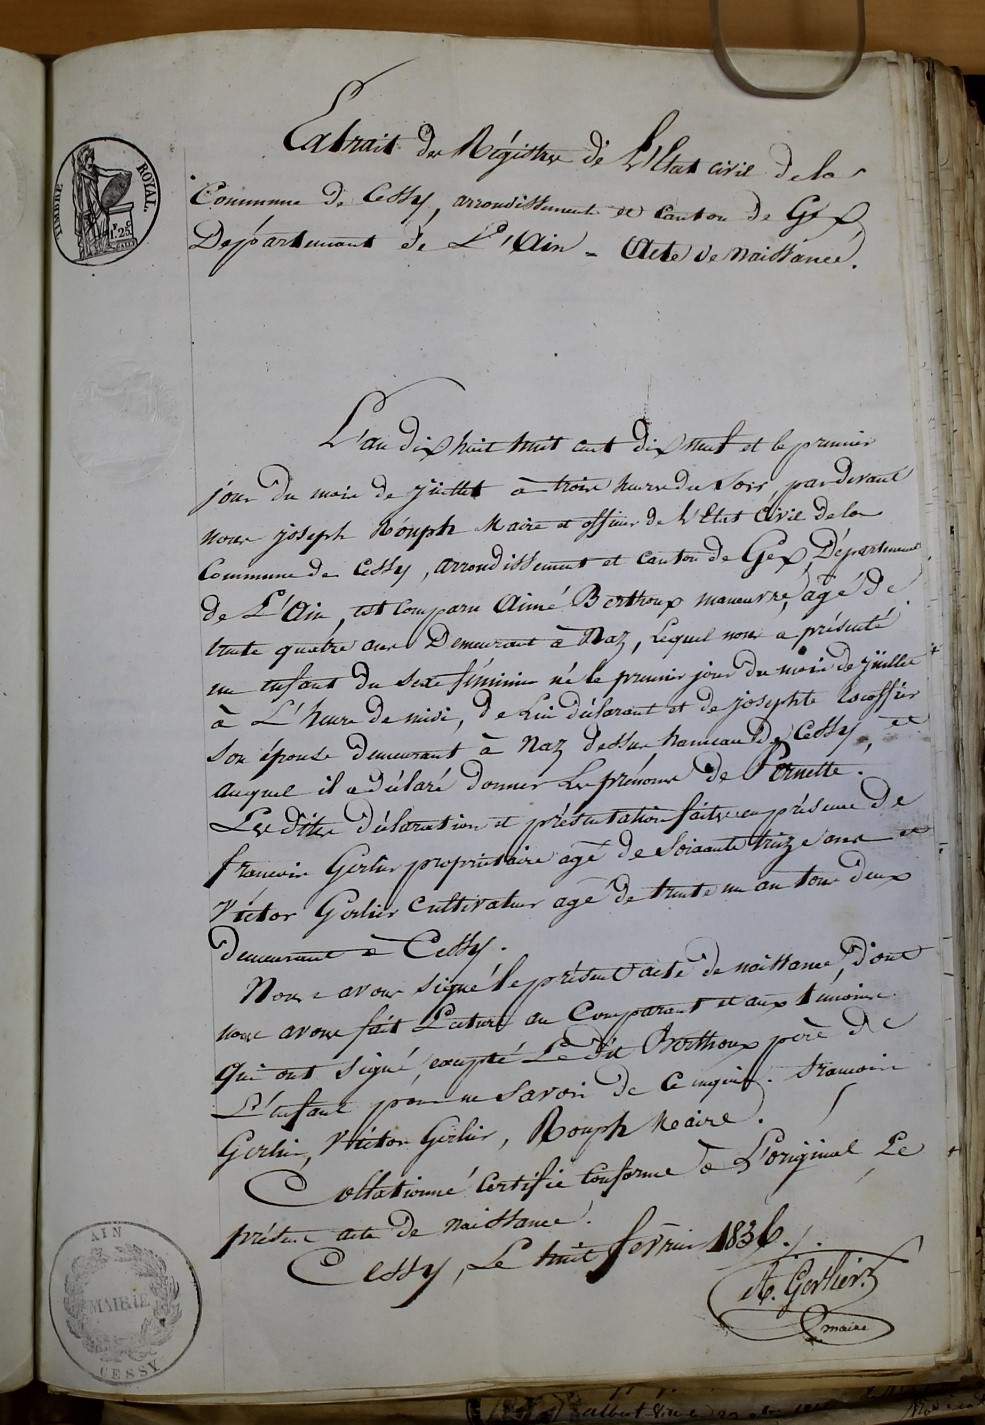 TIMBRE ROYAL.
1.25
Extrait des Régistre de L'Etat civil de la
Commune de Cessy, arrondissement et Canton de Gex
Département de L'Ain - Acte de naissance.
L'an dix huit cent dix neuf et le premier
jour du mois de juillet à trois heures du soir, pardevant
nous joseph Rouph Maire et officier de L'Etat Civil de la
Commune de Cessy, arrondissement et canton de Gex, Département
de L'Ain, est Comparu Aimé Berthoux maneuvre, âgé de
trente quatre ans Demeurant à Naz, Lequel nous a présenté
un enfant du sexe féminin né le premier jour du mois de juillet
à L'heure de midi, de Lui déclarant et de josephte Escoffier
son épouse demeurant à Naz dessus hameau de Cessy, et
auquel il a déclaré donner Les prénoms de Pernette.
Les dites déclaration et présentation faites en présence de
francois Gerlier propriétaire agé de soixante treize ans et
Victor Gerlier Cultivateur agé de trente un an tous deux
Demeurant à Cessy.
Nous avons signé le présent acte de naissance, dont
nous avons fait Lecture au Comparant et aux témoins
qui ont signé, excepté Le dit Berthoux père de
L'enfant pour ne savoir de ce enquis. francois
Gerlier, Victor Gerlier, Rouph Maire.
Collationné Certifié Conforme à L'original Le
présent acte de naissance.
Cessy, Le huit fevrier 1836.
A. Gerlier
maire
AIN
MAIRIE
CESSY